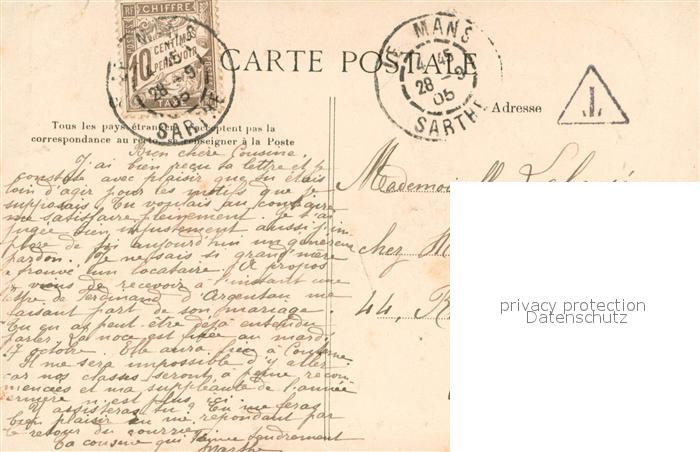 RF
CHIFFRE
POSTES
10
CENTIMES
A PERCEVOIR
TAXE
MANS
28 - 9
05
SARTHE
CARTE POSTALE
LE MANS
4 45
28 - 9
05
SARTHE
T
Adresse
Tous les pays étrangers n'acceptent pas la
correspondance au recto, se renseigner à la Poste
Bien chère Cousine
J'ai bien reçu ta lettre et je
constate avec plaisir que tu étais
loin d'agir pour les motifs que je
supposais. Tu voulais au contraire
me satisfaire pleinement. Je t'ai
jugée bien injustement aussi j'im
plore de toi aujourd'hui un généreux
pardon. Je ne sais si grand'mère
a trouvé un locataire. A propos
je viens de recevoir à l'instant une
lettre de Ferdinand d'Argentan me
faisant part de son mariage.
Tu en as peut-être déjà entendu
parler. La noce est fixée au mardi
17 octobre. Elle aura lieu à
Il me sera impossible d'y aller
car nos classes seront à peine recom
mencées et ma suppléante de l'année
dernière n'est plus ici.
Y assisteras-tu? Tu me feras
bien plaisir en me répondant par
le retour du courrier.
Ta cousine qui t'aime tendrement
Marthe
Mademoiselle
chez M
44, R
privacy protection
Datenschutz